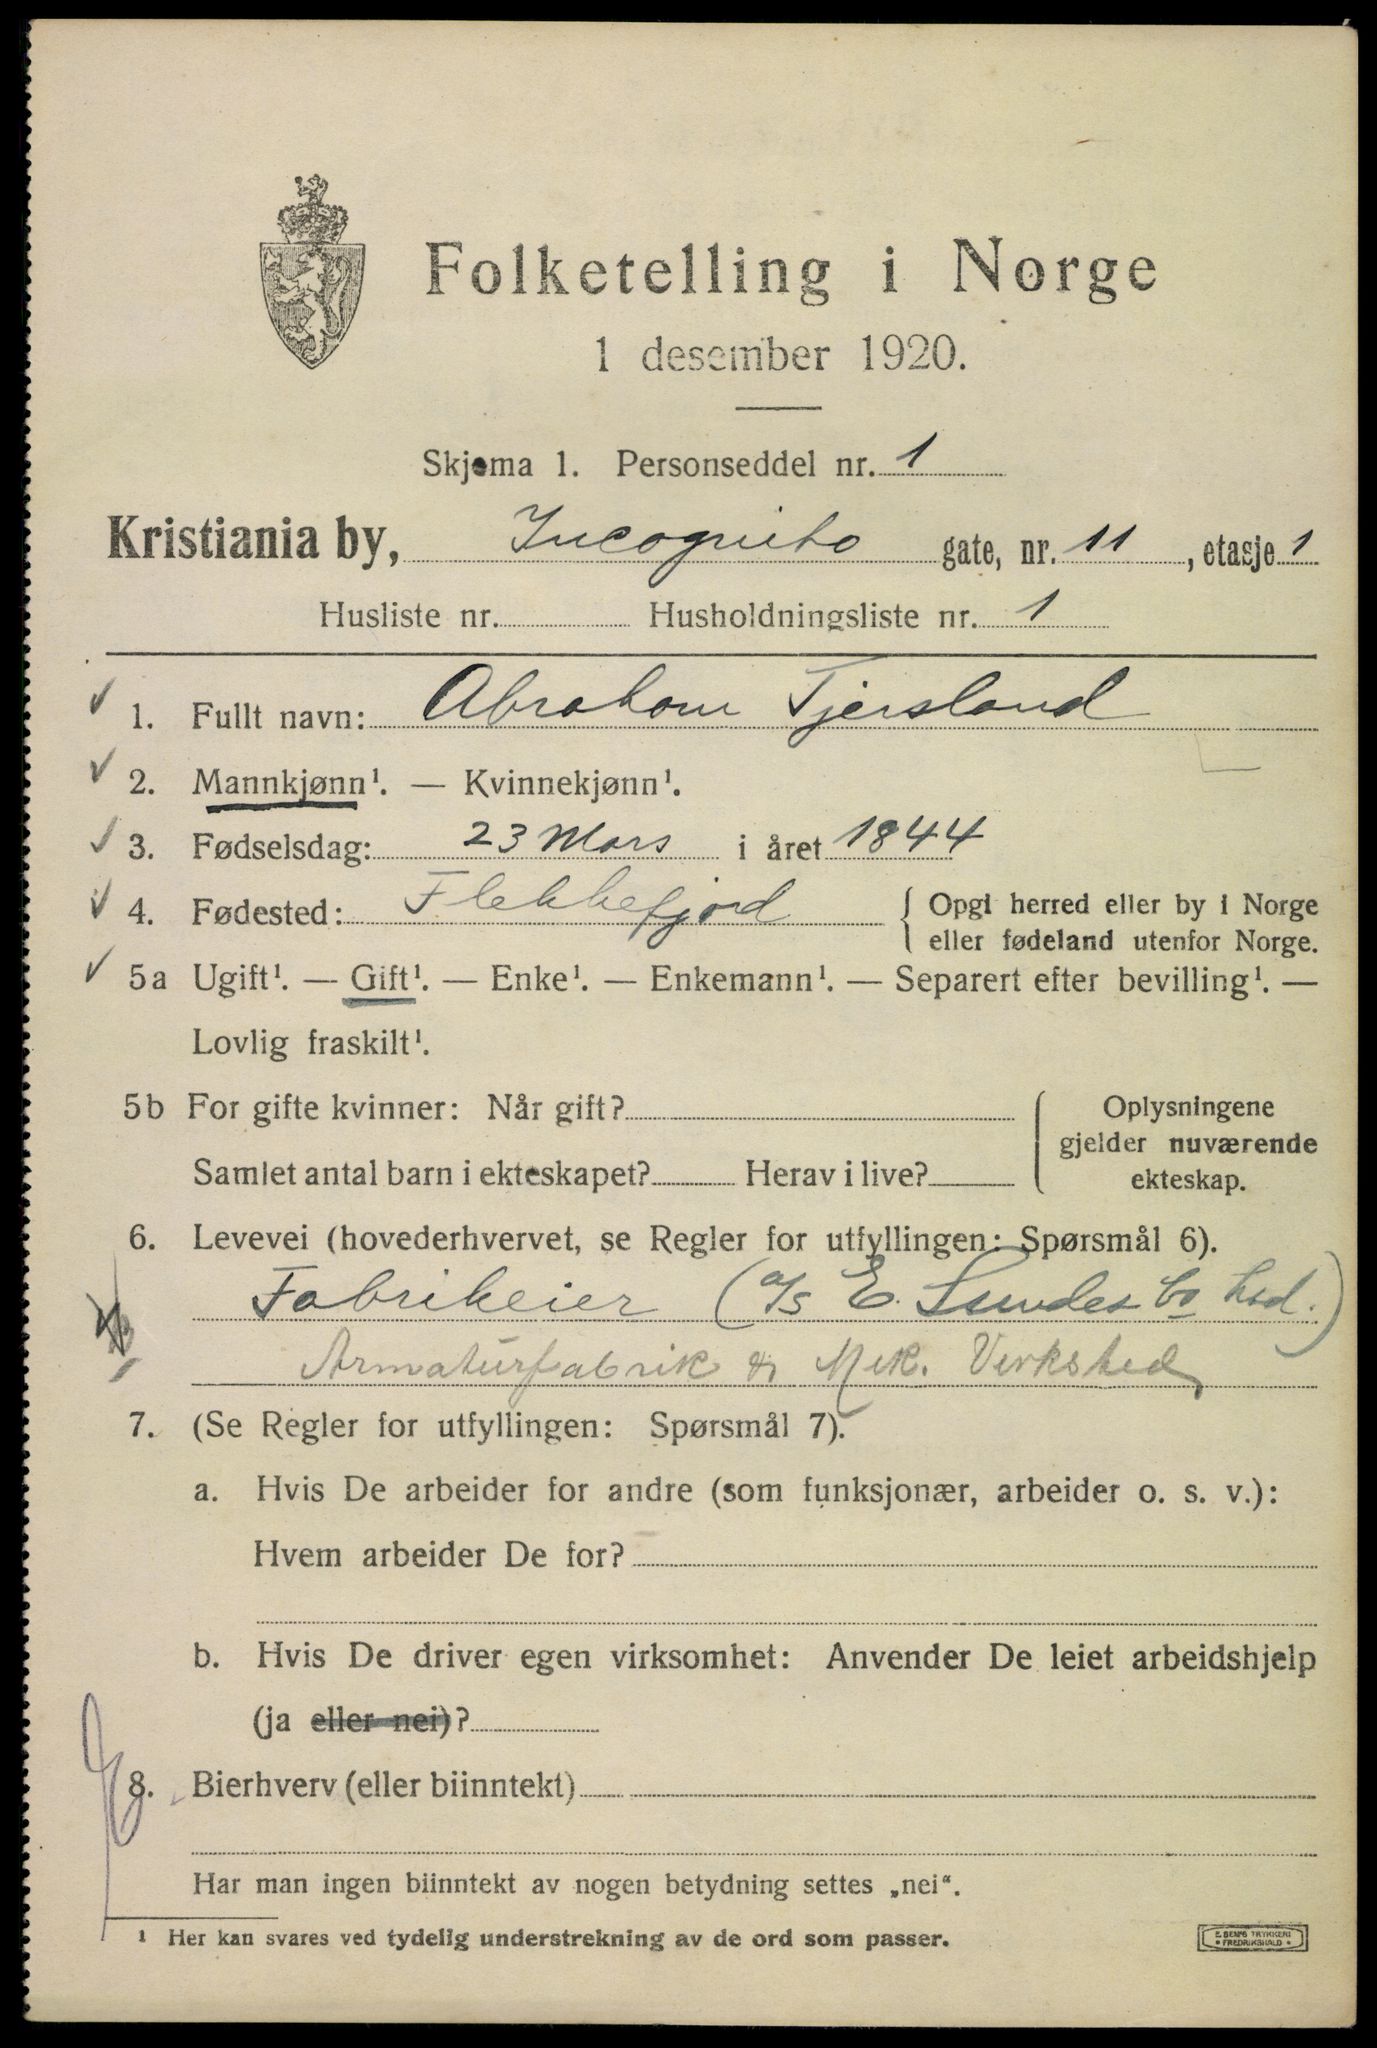 Folketelling i Norge
1 desember 1920.
Skjema 1. Personseddel nr. 1
Kristiania by, Incognito gate, nr. 11, etasje 1
Husliste nr. Husholdningsliste nr. 1
1. Fullt navn: Abraham Tjersland
2. Mannkjønn¹. — Kvinnekjønn¹.
3. Fødselsdag: 23 Mars i året 1844
4. Fødested: Flekkefjord { Opgi herred eller by i Norge
eller fødeland utenfor Norge.
5a Ugift¹. — Gift¹. — Enke¹. — Enkemann¹. — Separert efter bevilling¹. —
Lovlig fraskilt¹.
5b For gifte kvinner: Når gift? { Oplysningene
gjelder nuværende
Samlet antal barn i ekteskapet? Herav i live? ekteskap.
6. Levevei (hovederhvervet, se Regler for utfyllingen: Spørsmål 6).
Fabrikeier (A/S E. Sundes Co Ltd.)
Armaturfabrik & Mek. Verksted
7. (Se Regler for utfyllingen: Spørsmål 7).
a. Hvis De arbeider for andre (som funksjonær, arbeider o. s. v.):
Hvem arbeider De for?
b. Hvis De driver egen virksomhet: Anvender De leiet arbeidshjelp
(ja eller nei)?
8. Bierhverv (eller biinntekt)
Har man ingen biinntekt av nogen betydning settes „nei“.
¹ Her kan svares ved tydelig understrekning av de ord som passer.
E. SEM'S TRYKKERI
• FREDRIKSHALD •